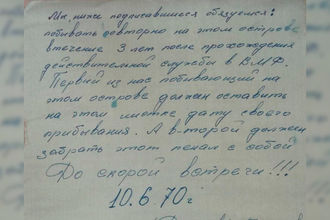 Мы, ниже подписавшиеся обязуемся:
побывать повторно на этом острове
втечение 3 лет после прохождения
действительной службы в ВМФ.
Первый из нас побывающий на
этом острове должен оставить
на этом листке дату своего
прибывания. А второй должен
забрать этот пенал с собой
До скорой встречи!!!
10.6.70г